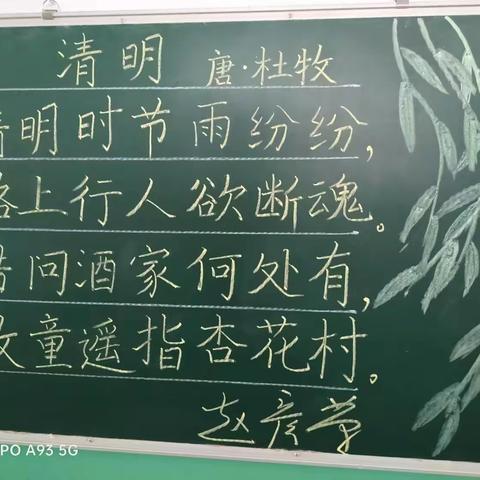 清明 唐·杜牧
清明时节雨纷纷,
路上行人欲断魂。
借问酒家何处有,
牧童遥指杏花村。
赵彦萍
PO A93 5G